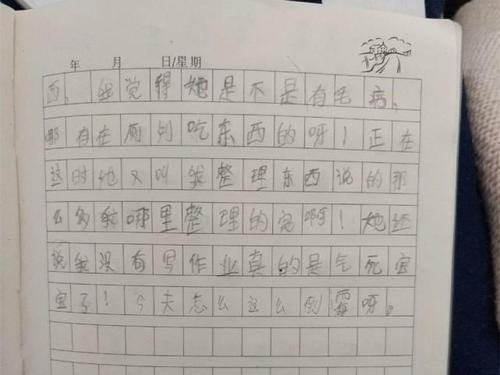 年 月 日/星期
西。我觉得她是不是有毛病。
哪有在厕所吃东西的呀！正在
这时她又叫我整理东西说的那
么多我哪里整理的完啊！她还
说我没有写作业真的是气死宝
宝了！今天怎么这么倒霉呀。